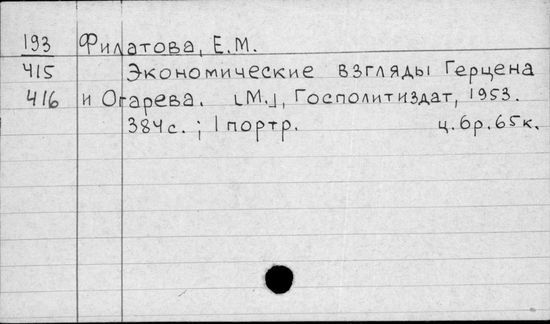 193 Филатова, Е.М.
415 Экономические взгляды Герцена
416 и Огарева. [М.], Госполитиздат, 1953.
384с. ; 1 портр. ц. 6р. 65к.